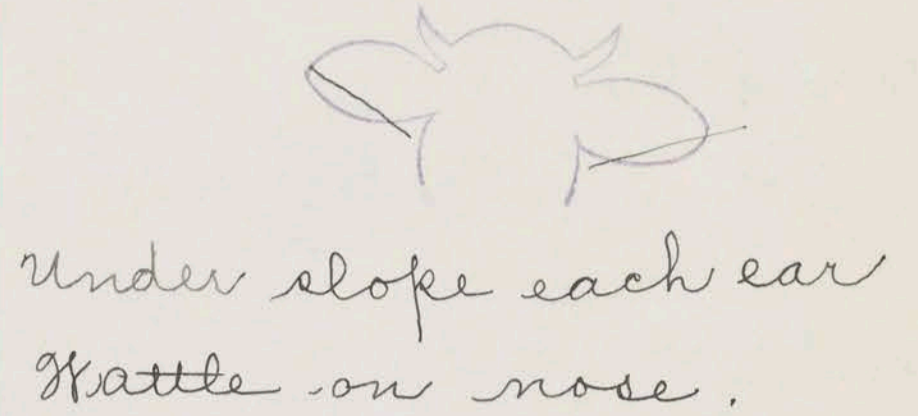 Under slope each ear
Wattle on nose.